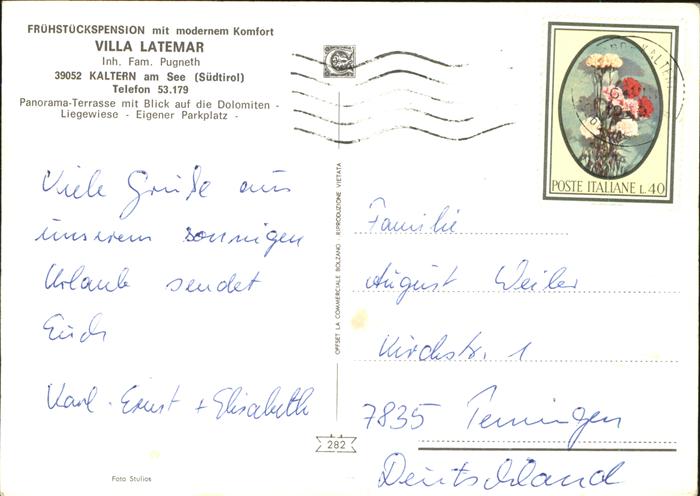 FRÜHSTÜCKSPENSION mit modernem Komfort
VILLA LATEMAR
Inh. Fam. Pugneth
39052 KALTERN am See (Südtirol)
Telefon 53.179
Panorama-Terrasse mit Blick auf die Dolomiten -
Liegewiese - Eigener Parkplatz -
Viele Grüße aus
unserem sonnigen
Urlaub sendet
Euch
Karl-Ernst + Elisabeth
Foto Stulios
OFFSET LA COMMERCIALE BOLZANO - RIPRODUZIONE VIETATA
282
POSTE ITALIANE L. 40
Familie
August Weiler
Kirchstr. 1
7835 Teningen
Deutschland